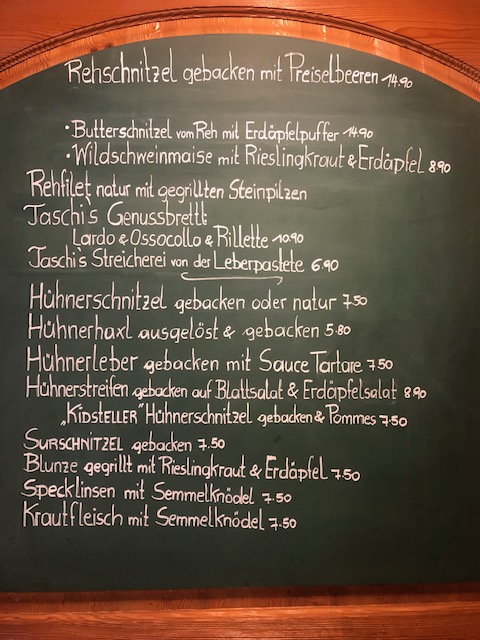 Rehschnitzel gebacken mit Preiselbeeren 14.90
• Butterschnitzel vom Reh mit Erdäpfelpuffer 14.90
• Wildschweinmaise mit Rieslingkraut & Erdäpfel 8.90
Rehfilet natur mit gegrillten Steinpilzen
Taschi's Genussbrettl:
Lardo & Ossocollo & Rillette 10.90
Taschi's Streicherei von der Leberpastete 6.90
Hühnerschnitzel gebacken oder natur 7.50
Hühnerhaxl ausgelöst & gebacken 5.80
Hühnerleber gebacken mit Sauce Tartare 7.50
Hühnerstreifen gebacken auf Blattsalat & Erdäpfelsalat 8.90
„KIDSTELLER" Hühnerschnitzel gebacken & Pommes 7.50
SURSCHNITZEL gebacken 7.50
Blunze gegrillt mit Rieslingkraut & Erdäpfel 7.50
Specklinsen mit Semmelknödel 7.50
Krautfleisch mit Semmelknödel 7.50